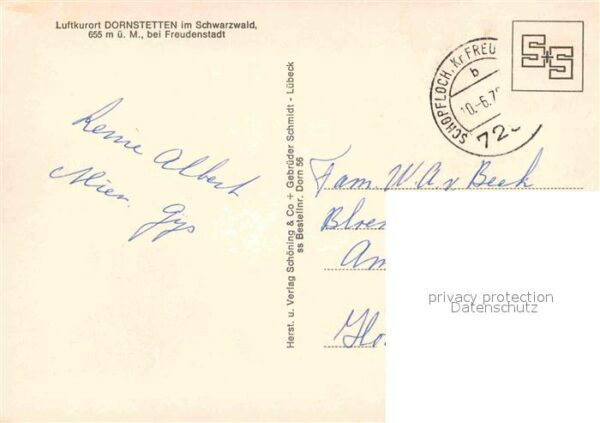 Luftkurort DORNSTETTEN im Schwarzwald,
655 m ü. M., bei Freudenstadt
SCHOPFLOCH, Kr FREU
b
10.-6.7
72
S+S
Albert
Herst. u. Verlag Schöning & Co + Gebrüder Schmidt - Lübeck
ss Bestellnr. Dorn 56
Fam. W.A v Beek
Am
privacy protection
Datenschutz